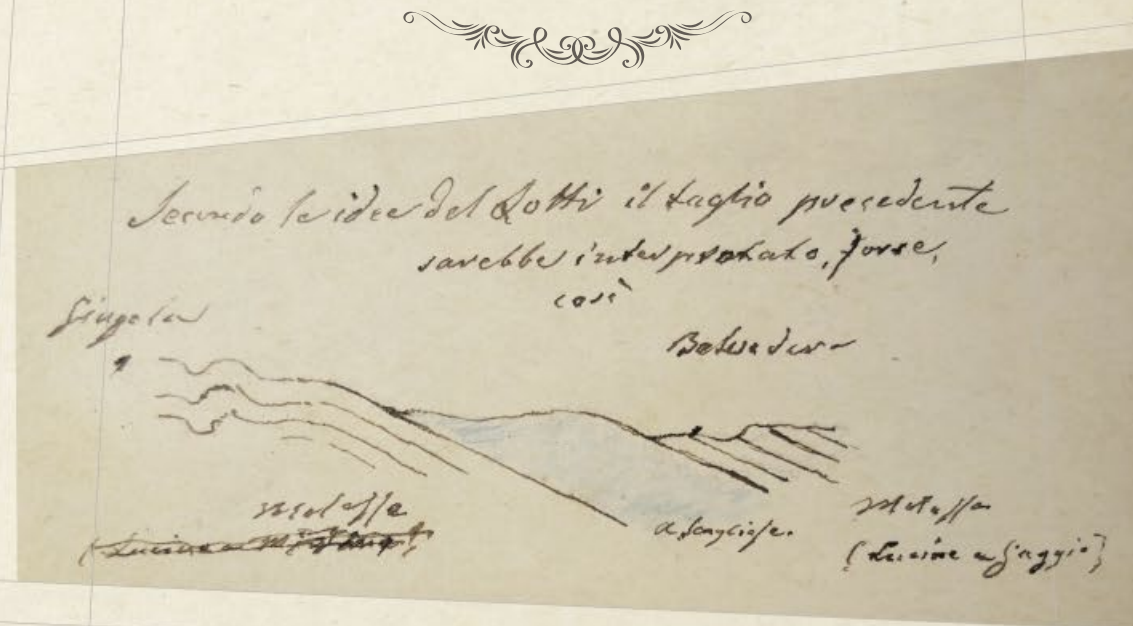 Secondo le idee del Lotti il taglio precedente
sarebbe interpretato, forse,
così
Belvedere
Molasse
a. scagliose.
Molasse
(Lucine a Gaggio)